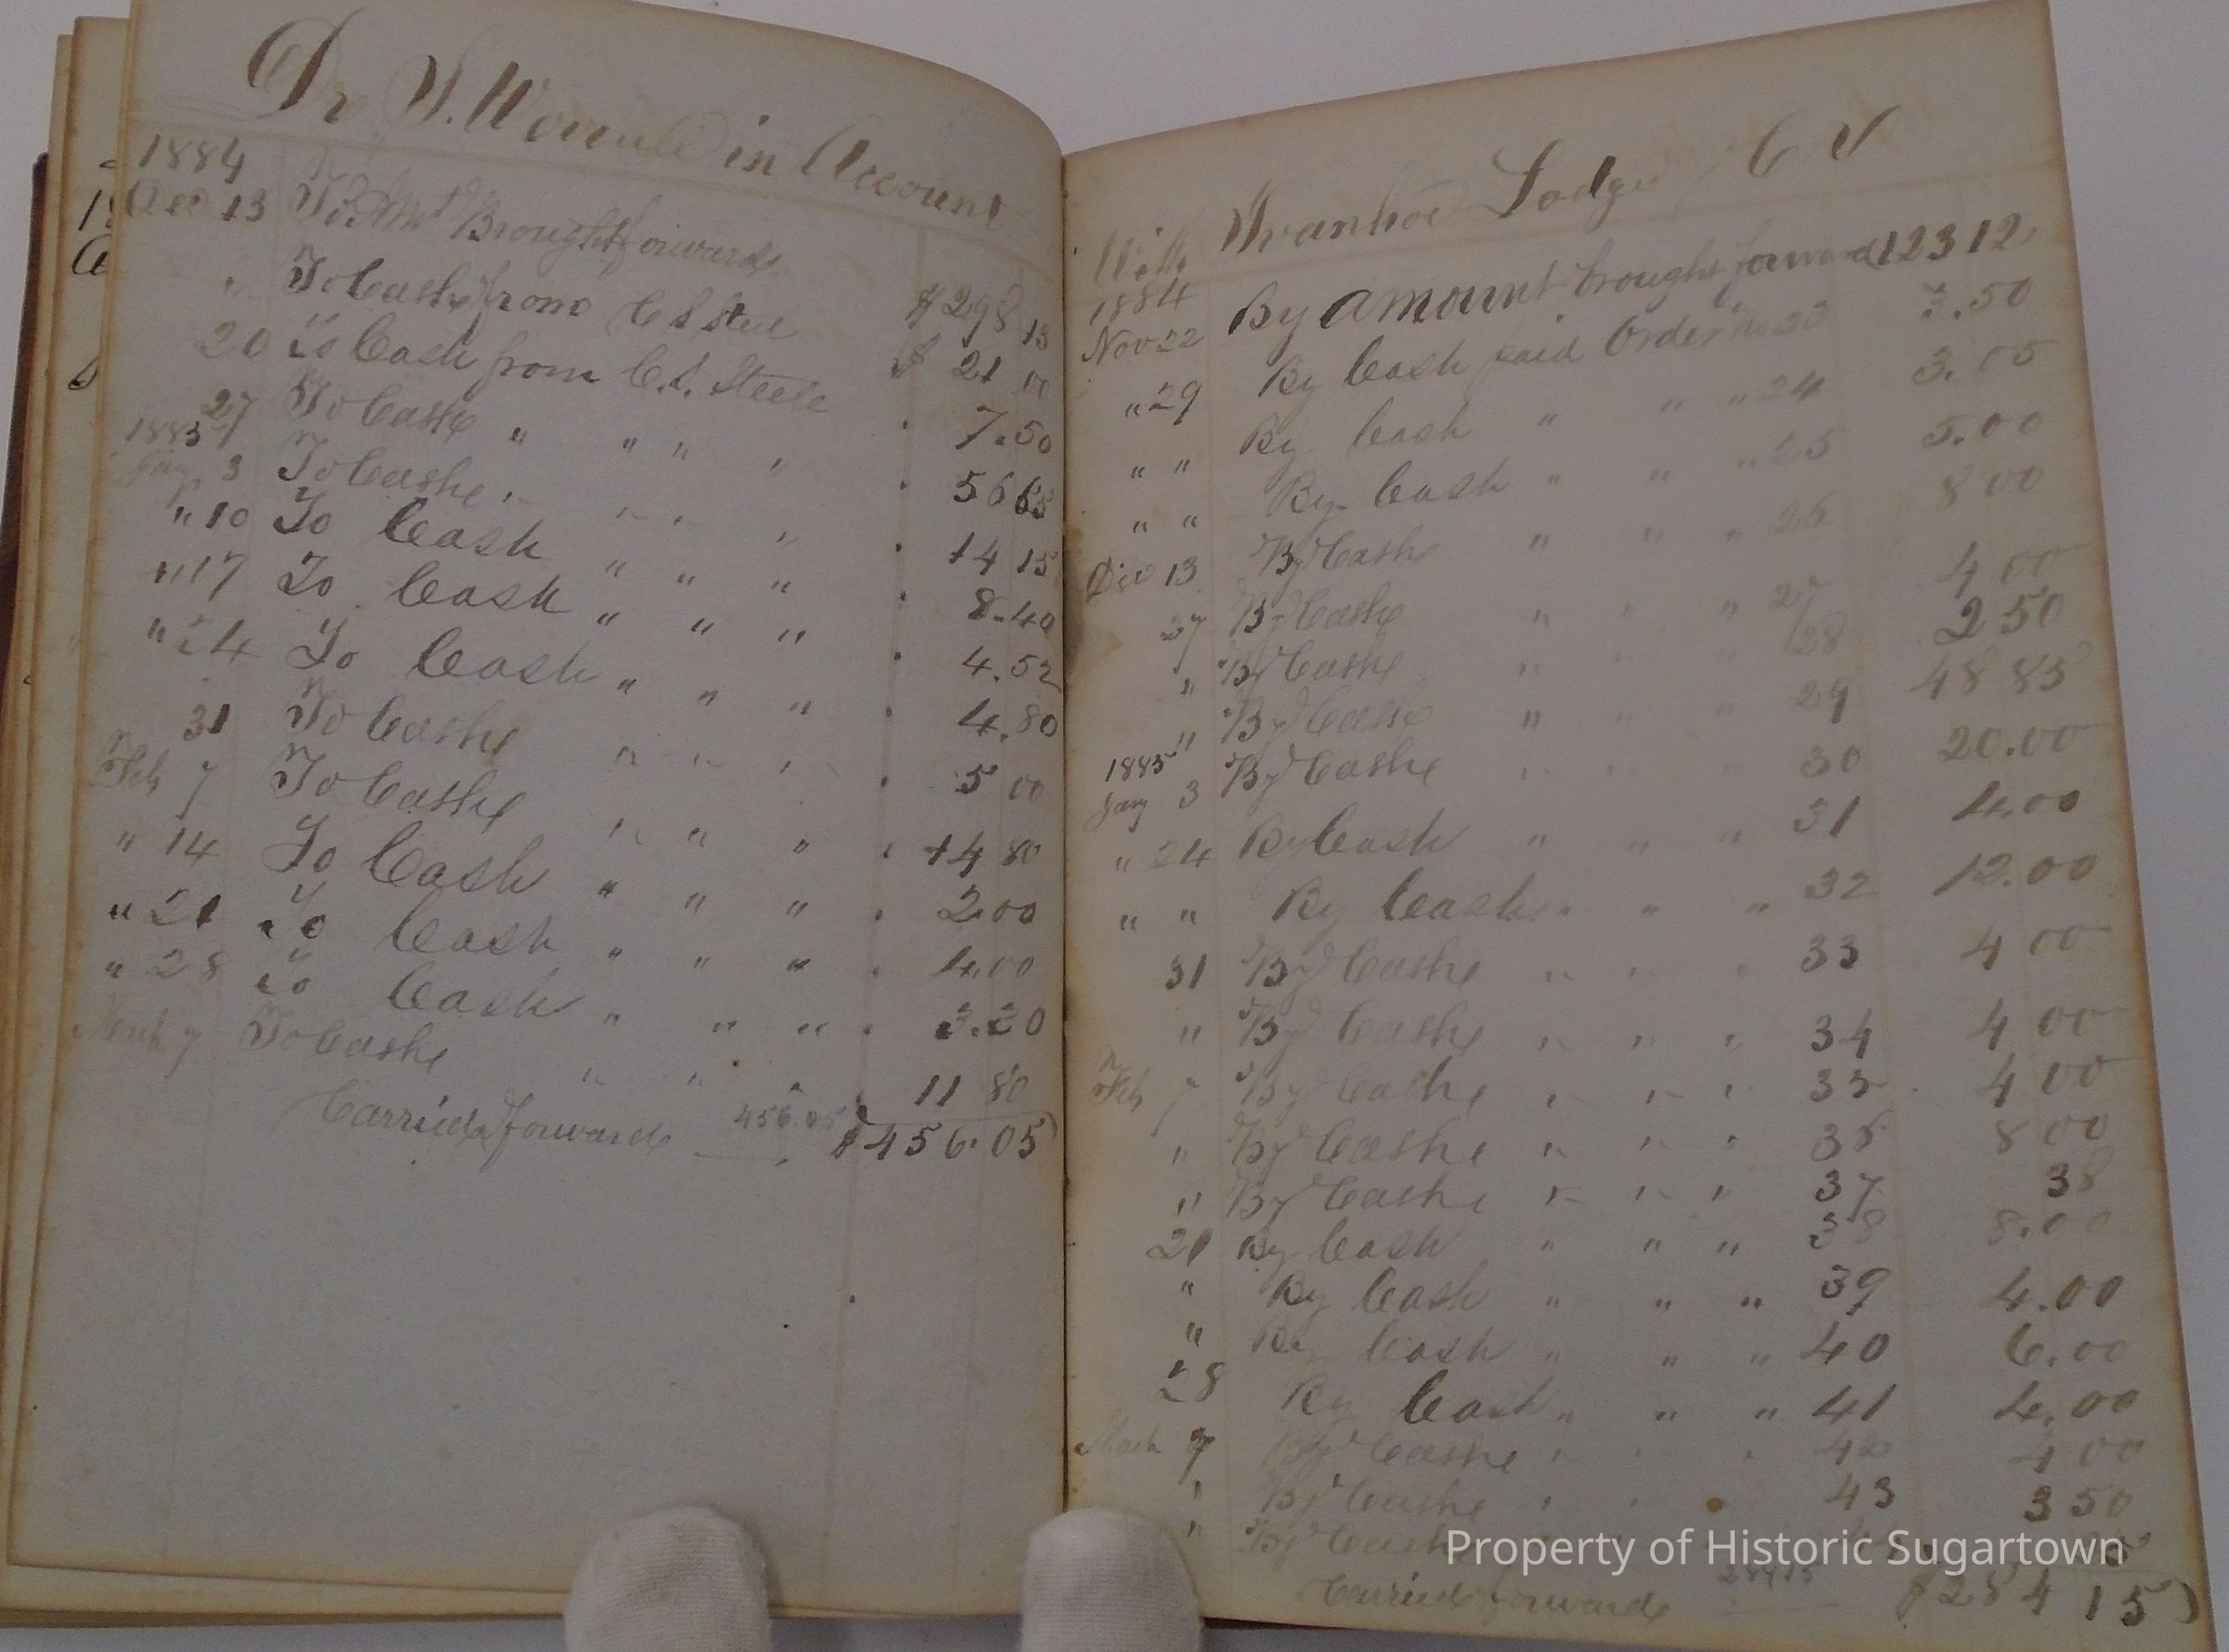 Dr in Account
1884
Dec 13 To Amt Brought forward $298 13
" To Cash from C S Steele $ 21 00
20 To Cash from C. S. Steele " 7.50
27 To Cash " " " " " 56 65
1885
Jany 3 To Cash " " " " " 14 15
" 10 To Cash " " " " 8.40
" 17 To Cash " " " " 4.52
" 24 To Cash " " " " 4.80
31 To Cash " " " " 5 00
Feb 7 To Cash " " " " 14 80
" 14 To Cash " " " " 2.00
" 21 To Cash " " " " 4.00
" 28 To Cash " " " " 3.30
March 7 To Cash " " " " 11 80
Carried forward 456.05 $456.05
With Ivanhoe Lodge
1884 By Amount brought forward 123 12
Nov 22 By Cash paid Order No 23 3.50
" 29 By Cash " " " 24 3.05
" " By Cash " " " 25 5.00
" " By Cash " " " 26 8 00
Dec 13 By Cash " " " 27 4 00
27 By Cash " " " 28 2 50
" By Cash " " " 29 48 85
" By Cash " " " 30 20.00
1885
Jany 3 By Cash " " " 31 4.00
" 24 By Cash " " " 32 12.00
" " By Cash " " " 33 4 00
31 By Cash " " " 34 4 00
" By Cash " " " 35 4 00
Feb 7 By Cash " " " 36 8 00
" By Cash " " " 37 38
" By Cash " " " 38 8.00
21 By Cash " " " 39 4.00
" By Cash " " " 40 6.00
" By Cash " " " 41 4.00
28 By Cash " " " 42 4 00
March 7 By Cash " " " 43 3 50
" By Cash
Property of Historic Sugartown
Carried forward 284 15 $284 15